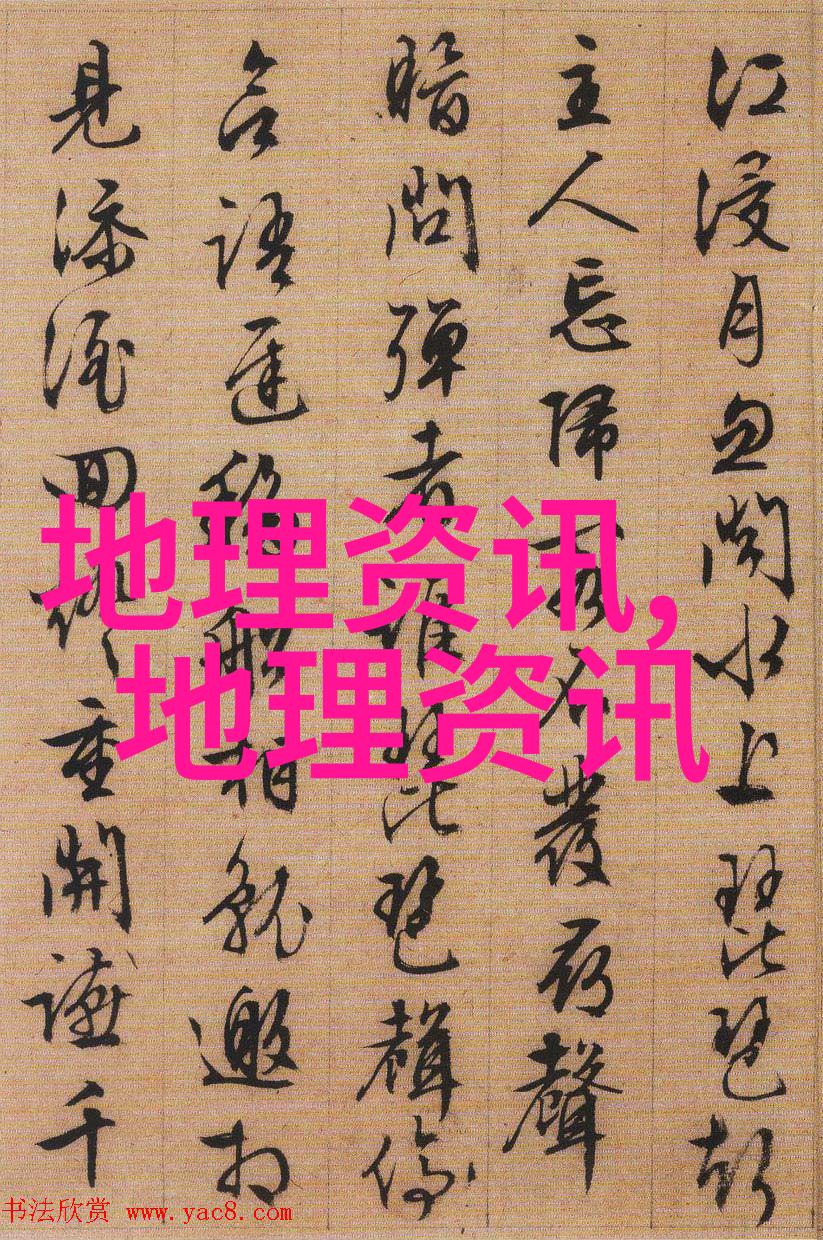 江浸月忽聞水上琵琶声
主人忘歸客不發尋聲
暗問彈者誰琵琶聲停
語遲移船相就邀相
見添酒回燈重開讌千
地理资讯,
地理资讯
书法欣赏 www.yac8.com